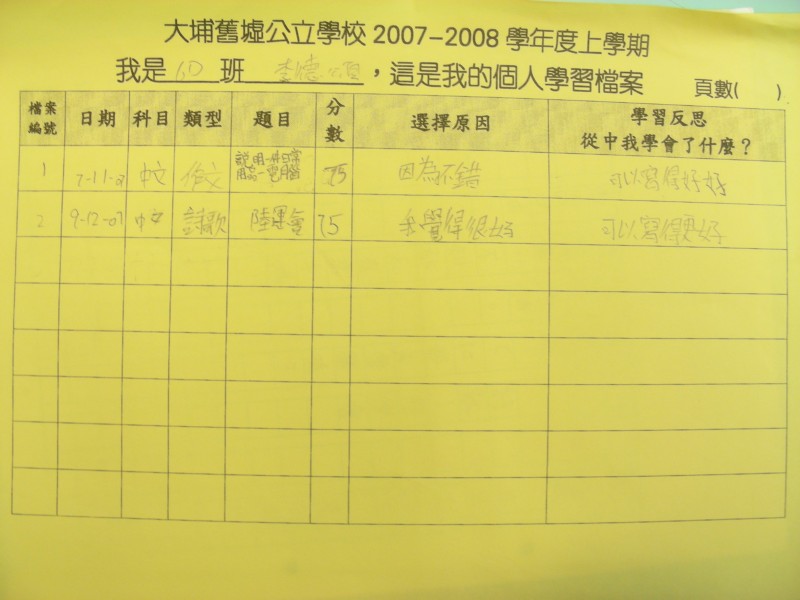 大埔舊墟公立學校 2007-2008 學年度上學期
我是 6D 班 李德頌 ,這是我的個人學習檔案 頁數( )
檔案編號 日期 科目 類型 題目 分數 選擇原因 學習反思 從中我學會了什麼?
1 7-11-0 中文 作文 説明一件日常用品-電腦 75 因為不錯 可以寫得好好
2 9-12-07 中文 詩歌 陸運會 75 我覺得很好 可以寫得更好